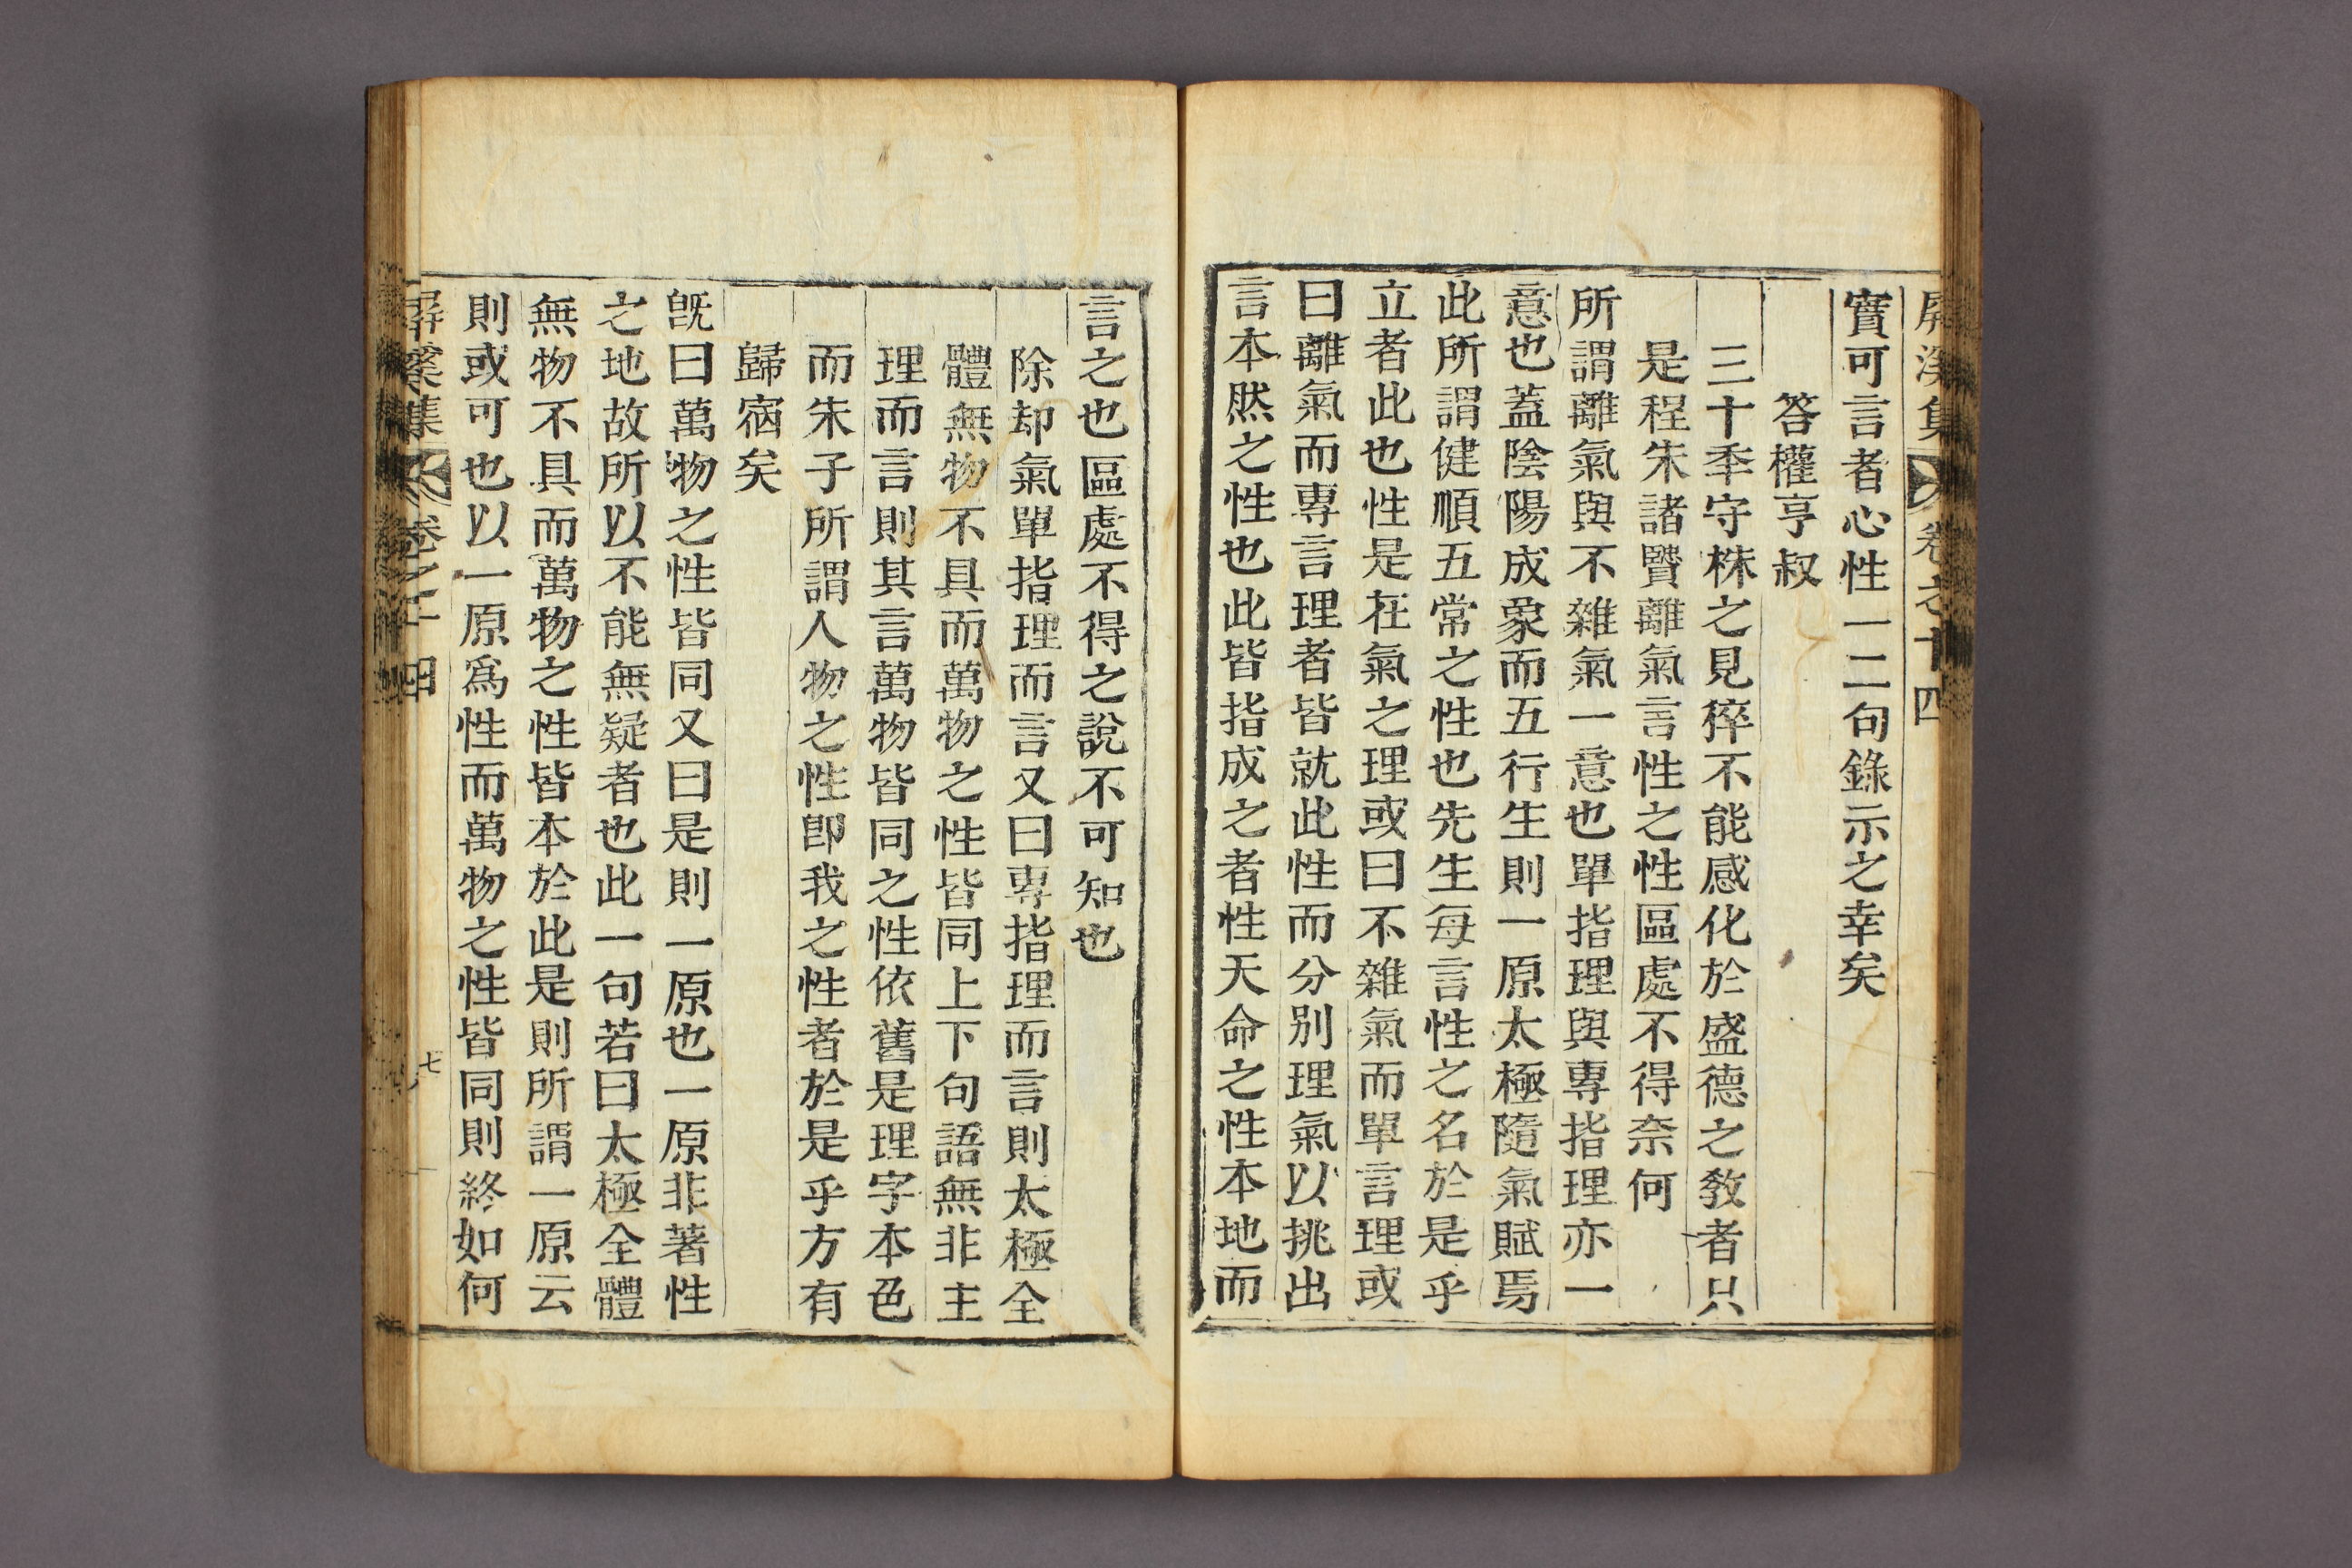 屛溪集 卷之十四
實可言者心性一二句錄示之幸矣
答權亨叔
三十秊守株之見猝不能感化於盛德之敎者只
是程朱諸贒離氣言性之性區處不得奈何
所謂離氣與不雜氣一意也單指理與專指理亦一
意也蓋陰陽成象而五行生則一原太極隨氣賦焉
此所謂健順五常之性也先生每言性之名於是乎
立者此也性是在氣之理或曰不雜氣而單言理或
曰離氣而專言理者皆就此性而分別理氣以挑出
言本然之性也此皆指成之者性天命之性本地而
言之也區處不得之說不可知也
除却氣單指理而言又曰專指理而言則太極全
體無物不具而萬物之性皆同上下句語無非主
理而言則其言萬物皆同之性依舊是理字本色
而朱子所謂人物之性卽我之性者於是乎方有
歸宿矣
旣曰萬物之性皆同又曰是則一原也一原非著性
之地故所以不能無疑者也此一句若曰太極全體
無物不具而萬物之性皆本於此是則所謂一原云
則或可也以一原爲性而萬物之性皆同則終如何
屛溪集 卷之十四 七